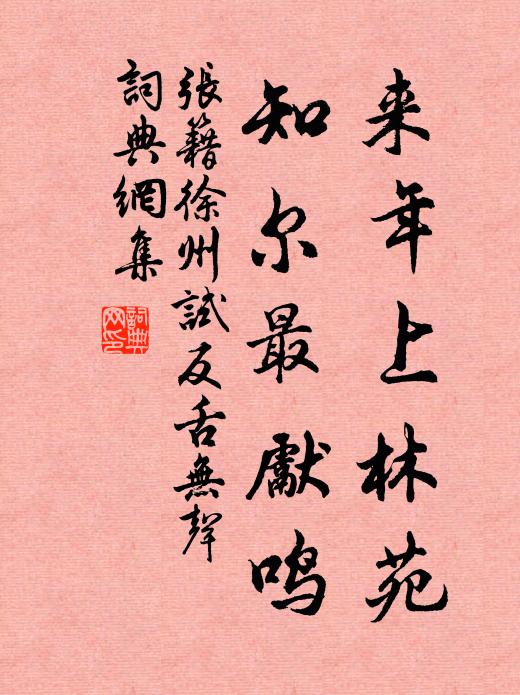 来年上林苑
知尔最獻鳴
張籍徐州試反舌無聲
詞典網集
詞典网印